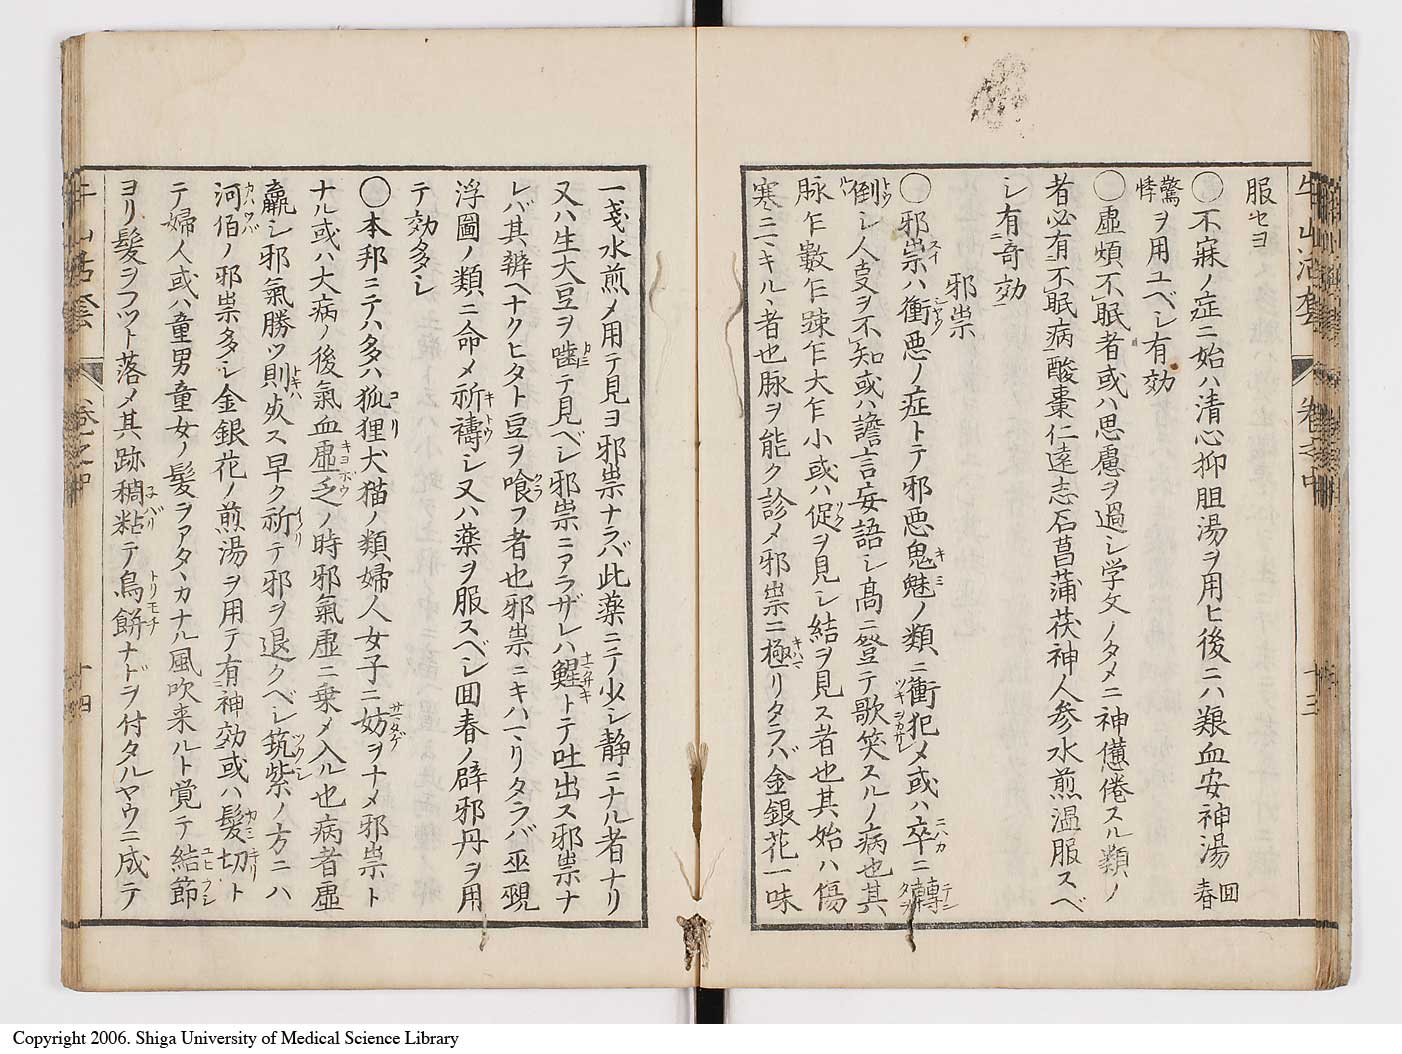 牛山活套 巻之中 十三
服セヨ
○不寐ノ症ニ始ハ清心抑胆湯ヲ用ヒ後ニハ養血安神湯 回春
驚悸ヲ用ユベシ有効
○虚煩不眠者或ハ思慮ヲ過シ学文ノタメニ神憊倦スル類ノ
者必有不眠病酸棗仁遠志石菖蒲茯神人参水煎温服スベ
シ有奇効
邪祟
○邪祟ハ衝悪ノ症トテ邪悪鬼魅ノ類ニ衝犯メ或ハ卒ニ轉
倒シ人叓ヲ不知或ハ譫言妄語シ高ニ登テ歌笑スルノ病也其
脉乍數乍踈乍大乍小或ハ促ヲ見シ結ヲ見ス者也其始ハ傷
寒ニ二キル丶者也脉ヲ能ク診メ邪祟ニ極リタラバ金銀花一味
一戔水煎メ用テ見ヨ邪祟ナラバ此薬ニテ少シ静ニナル者ナリ
又ハ生大豆ヲ噛テ見ベシ邪祟ニアラザレハ鯹トテ吐出ス邪祟ナ
レバ其辨ヘナクヒタト豆ヲ喰フ者也邪祟ニキハマリタラバ巫覡
浮圖ノ類ニ命メ祈禱シ又ハ薬ヲ服スベシ回春ノ辟邪丹ヲ用
テ効多シ
○本邦ニテハ多ハ狐狸犬猫ノ類婦人女子ニ妨ヲナメ邪祟ト
ナル或ハ大病ノ後氣血虚乏ノ時邪氣虚ニ乗メ入ル也病者虚
羸シ邪氣勝ツ則死ス早ク祈テ邪ヲ退クベシ筑紫ノ方ニハ
河伯ノ邪祟多シ金銀花ノ煎湯ヲ用テ有神効或ハ髪切ト
テ婦人或ハ童男童女ノ髪ヲアタヽカナル風吹来ルト覚テ結節
ヨリ髪ヲフツト落メ其跡稠粘テ鳥餅ナドヲ付タルヤウニ成テ
牛山活套 巻之中 十四
Copyright 2006. Shiga University of Medical Science Library